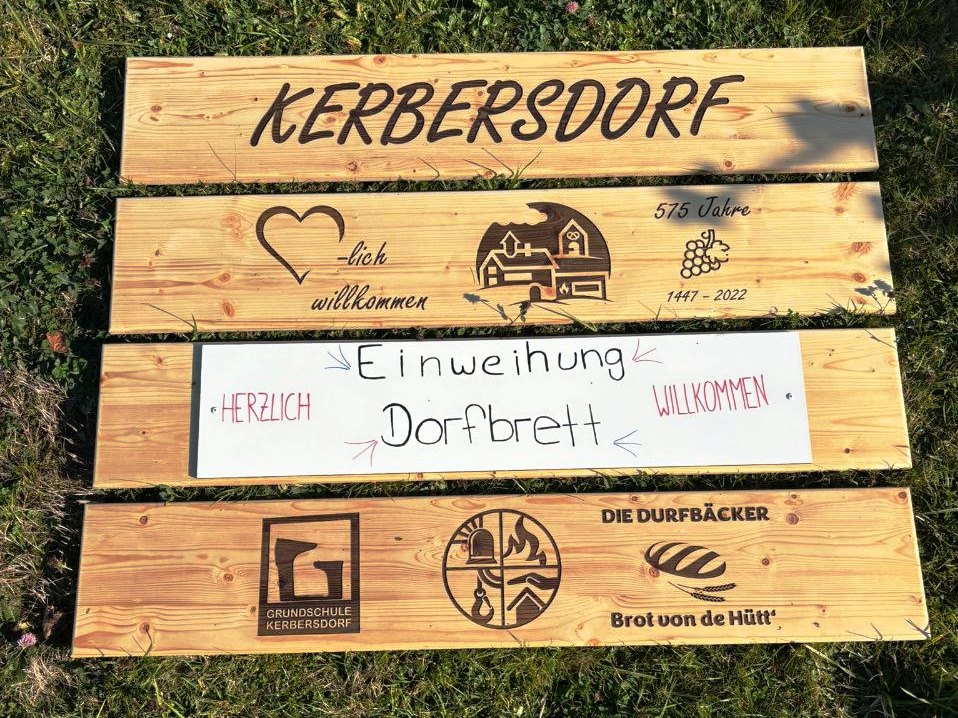 KERBERSDORF
-lich
willkommen
575 Jahre
1447 - 2022
Einweihung
HERZLICH
WILLKOMMEN
Dorfbrett
GRUNDSCHULE
KERBERSDORF
DIE DURFBÄCKER
Brot von de Hütt'